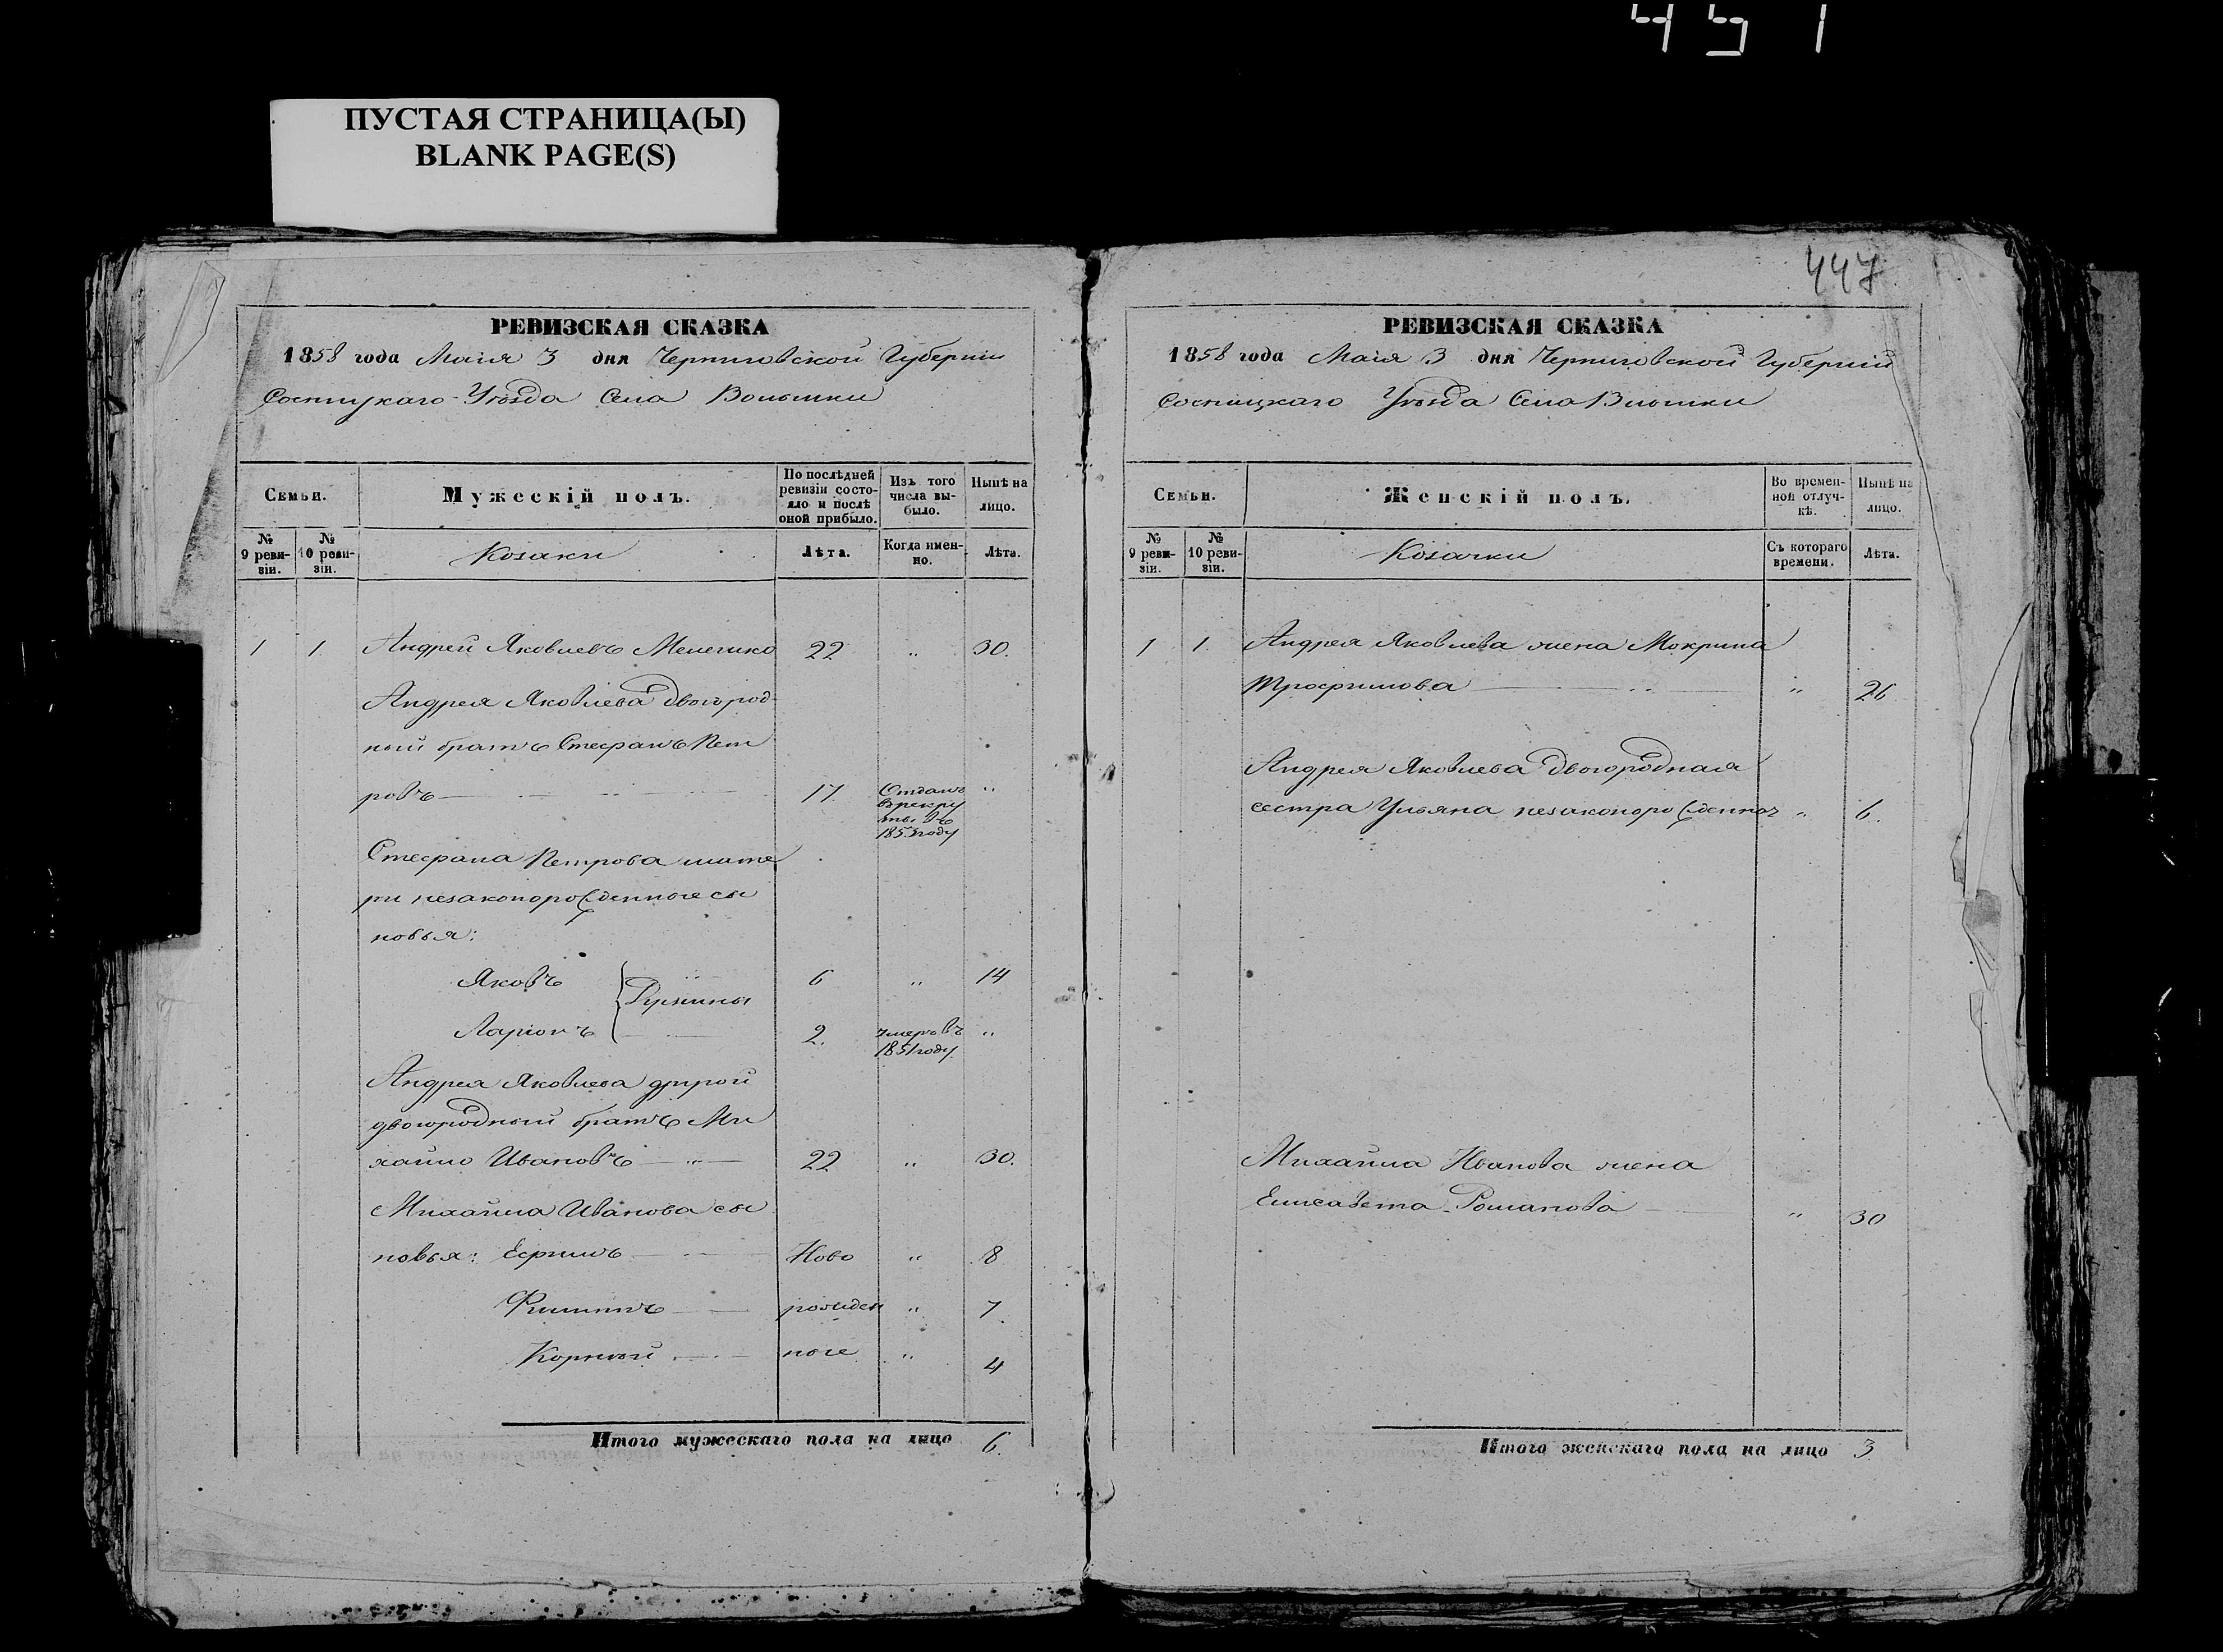 451
ПУСТАЯ СТРАНИЦА(Ы)
BLANK PAGE(S)
РЕВИЗСКАЯ СКАЗКА
1858 года Маія 3 дня Черниговской Губерніи
Сосницкаго Уѣзда Села Волынки
Семьи.
Мужескій полъ.
По послѣдней ревизіи состояло и послѣ оной прибыло.
Изъ того числа выбыло.
Нынѣ на лицо.
№ 9 ревизіи.
№ 10 ревизіи.
Козаки
Лѣта.
Когда именно.
Лѣта.
1 1 Андрей Яковлевъ 22 " 30.
Андрея Яковлева двоюрод-
ный братъ Стефанъ Пет
ровъ 17. Отданъ въ рекруты въ 1853 году "
Стефана Петрова мате
ри незаконорожденные сы
новья:
Яковъ 6 " 14
Ларіонъ 2. умеръ въ 1851 году "
Андрея Яковлева другой
двоюродный братъ Ми
хайло Ивановъ " 22 " 30.
Михайла Иванова сы
новья: Ефимъ Ново " 8
Филипъ рожден " 7
Корній ные " 4
Итого мужескаго пола на лицо 6.
447
РЕВИЗСКАЯ СКАЗКА
1858 года Маія 3 дня Черниговской Губерніи
Сосницкаго Уѣзда Села
Семьи.
Женскій полъ.
Во временной отлучкѣ.
Нынѣ на лицо.
№ 9 ревизіи.
№ 10 ревизіи.
Козачки
Съ котораго времени.
Лѣта.
1 1. Андрея Яковлева жена Мокрина
Трофимова " 26
Андрея Яковлева двоюродная
сестра Ульяна " 6.
Михайла Иванова жена
Елисавета Романова " 30
Итого женскаго пола на лицо 3